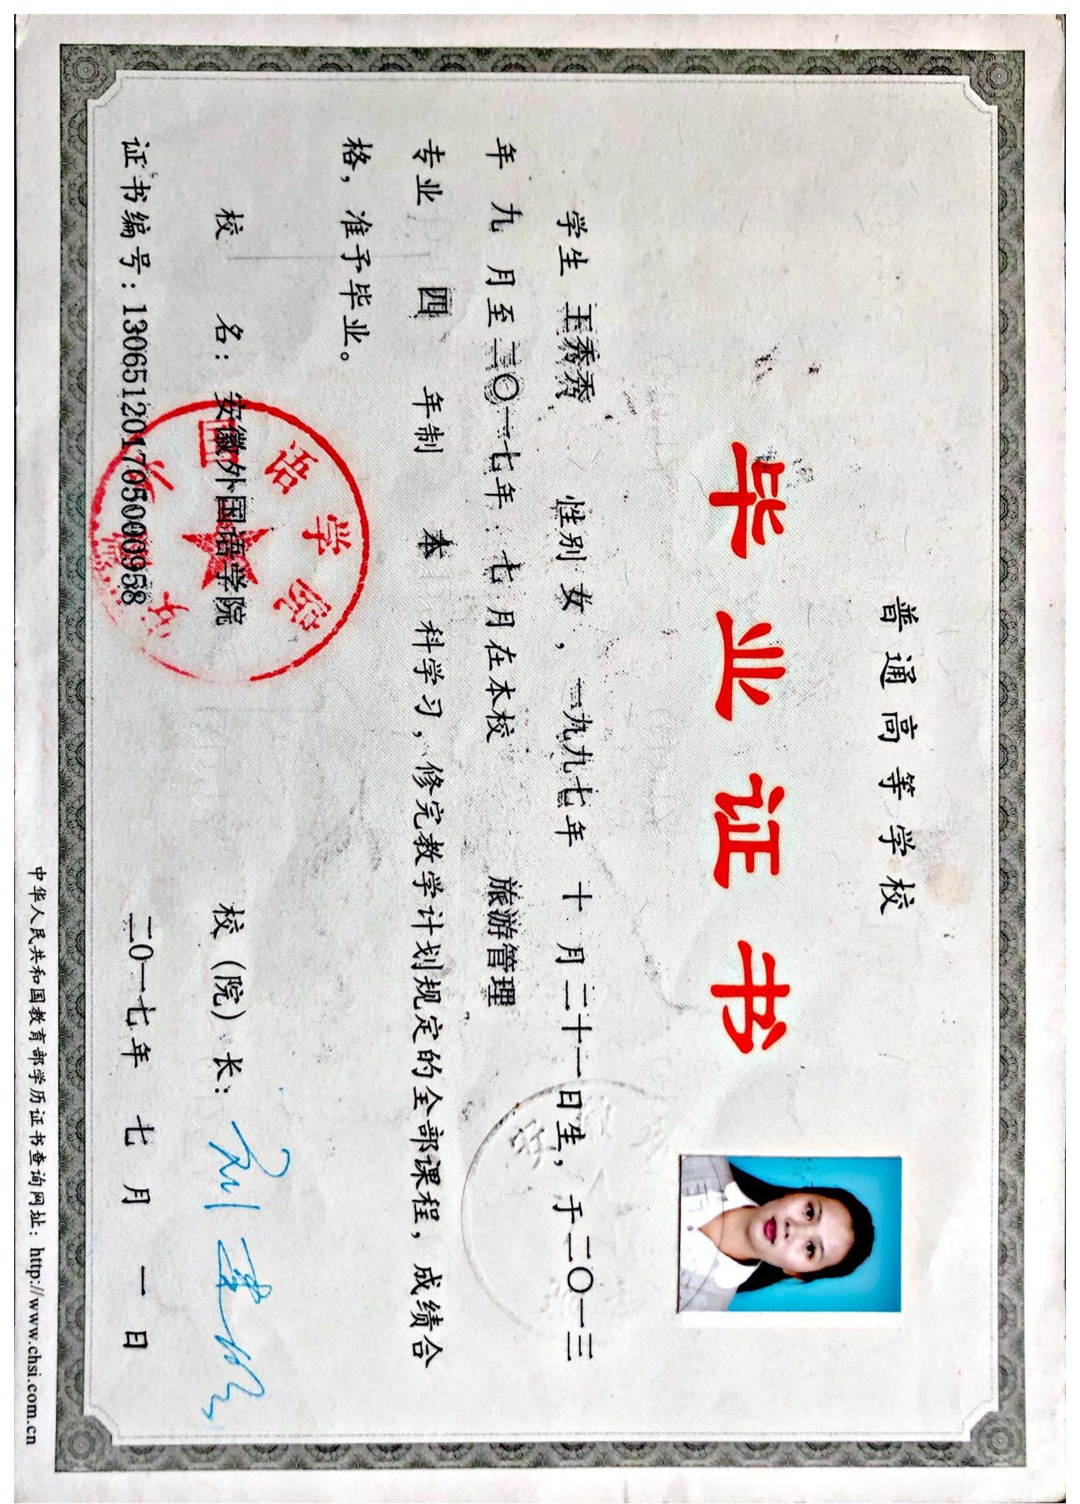 普通高等学校
毕业证书
学生 王秀秀 性别 女， 一九九七年 十 月 二十一日生，于二〇一三
年 九 月至二〇一七年 七 月在本校 旅游管理
专业 四 年制 本 科学习，修完教学计划规定的全部课程，成绩合
格，准予毕业。
校 名：安徽外国语学院 校（院）长：
证书编号：130651201705000958 二〇一七年 七 月 一 日
中华人民共和国教育部学历证书查询网址：http://www.chsi.com.cn